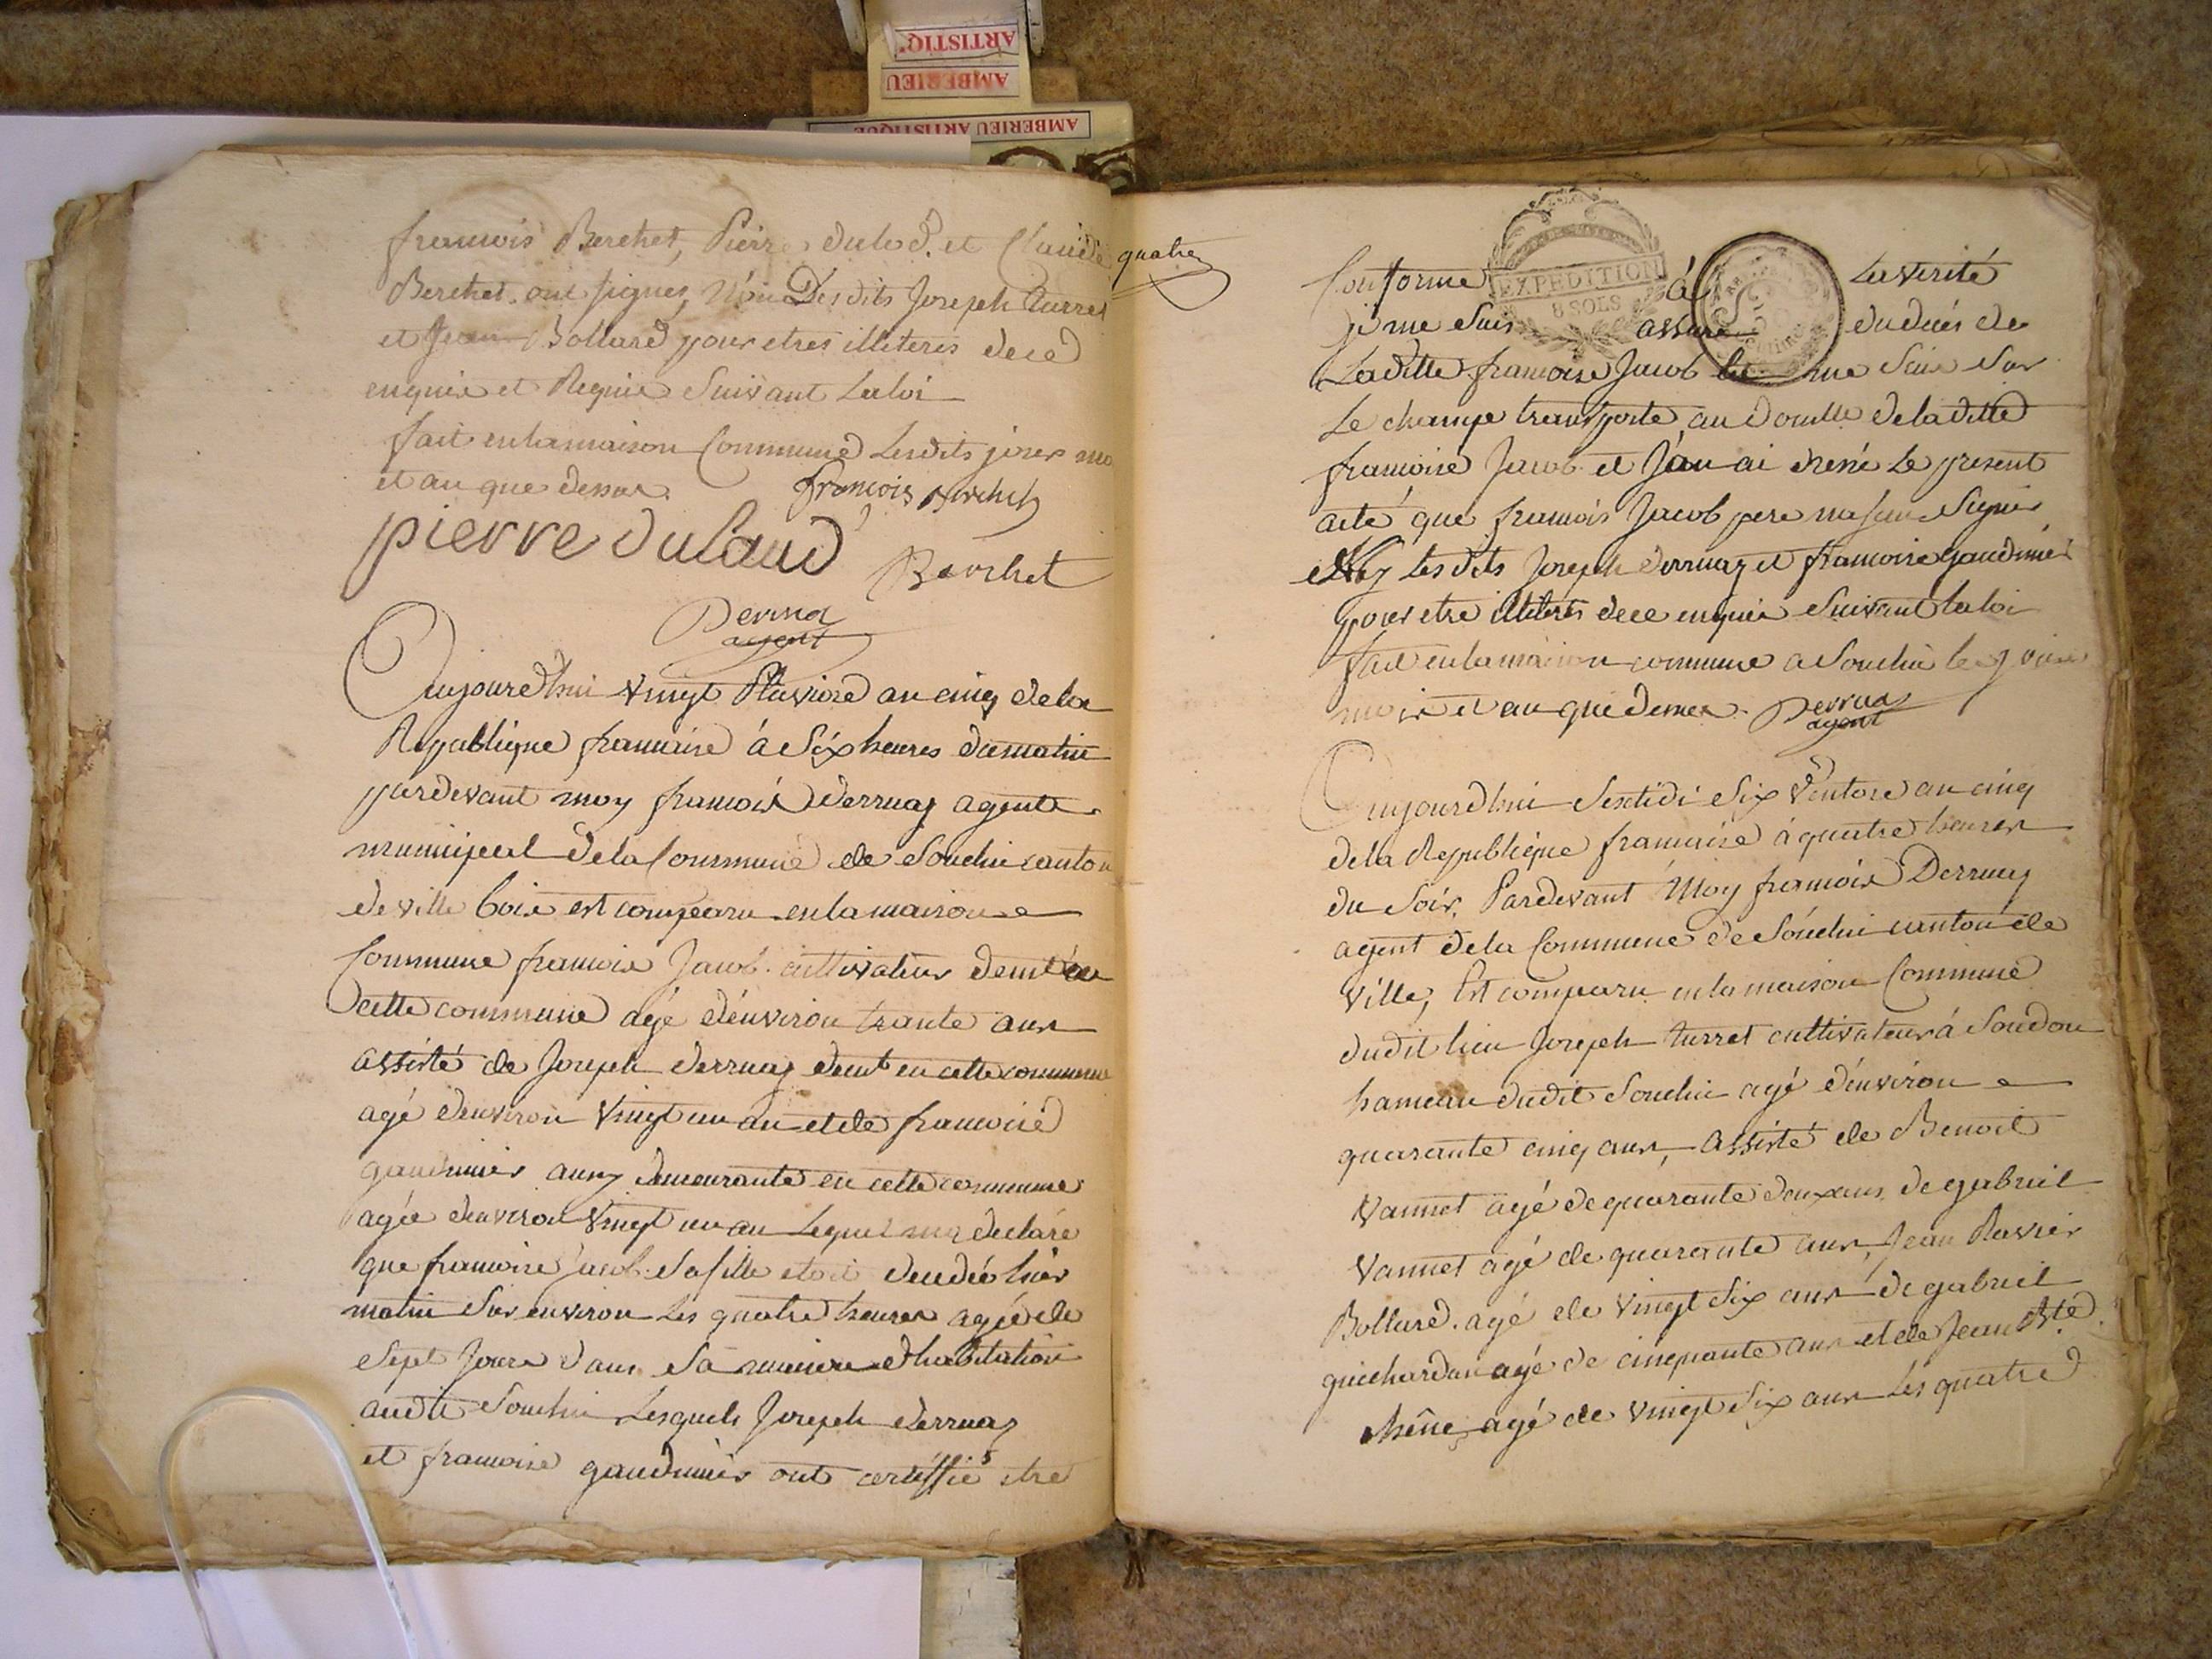 ARTISTIQ
AMBERIEU
AMBERIEU ARTISTIQUE
francois Berchet, Pierre dulod. et Claude
Berchet. ont signes, Non Desdits Joseph turret
et Jean Bollard pour etres illiteres de ce
enquis et Requis Suivant la loi
fait en la maison Commune Lesdits jours mo
et an que dessus. francois Berchet
pierre dulaud
Berchet
Derrua
agent
Aujourdhui vingt Pluviose an cinq de la
Republique francaise á Six heures du matin
pardevant moy francois Derruaz agent
municipal de la Commune de Souclin canton
de ville bois est comparu en la maison
Commune francois Jacob cultivateur demt en
cette commune agé d'environ trante ans
assisté de Joseph derruaz demt en cette commune
agé d'environ vingt un an et de francoise
gaudinier aussy demeurante en cette commune
agée d'environ vingt un an Lequel ma declaré
que francoise Jacob Sa fille etoit decedée hier
matin Sur environ les quatre heures agée de
Sept Jours dans Sa maison d'habitation
audit Souclin Lesquels Joseph derruaz
et francoise gaudinier ont certiffié etre
quatre
Conforme á La verité
je me Suis assuré du decés de
Laditte francoise Jacob me Suis Sur
Le champs transporté au domicile de laditte
francoise Jacob et J'an ai dressé Le present
acte que francois Jacob pere na seu Signer
Ny Lesdits Joseph derruaz et francoise gaudinier
pour etre illiterés de ce enquis Suivant la loi
fait en la maison commune a Souclin les jour
mois et an que dessus. Derruaz
agent
EXPEDITION
8 SOLS
Aujourdhui Sextidi Six Ventose an cinq
de la Republique francaise á quatre heures
du Soir, Pardevant Moy francois Derruaz
agent de la Commune de Souclin canton de
Ville, Est comparu en la maison Commune
dudit lieu Joseph turret cultivateur á Soudon
hameau dudit Souclin agé d'environ
quarante cinq ans, assisté de Benoit
Vannet agé de quarante deux ans de gabriel
Vannet agé de quarante ans, Jean Ravier
Bollard. agé de vingt Six ans de gabriel
guichardan agé de cinquante ans et de Jean Bte
chêne agé de vingt Six ans Les quatre